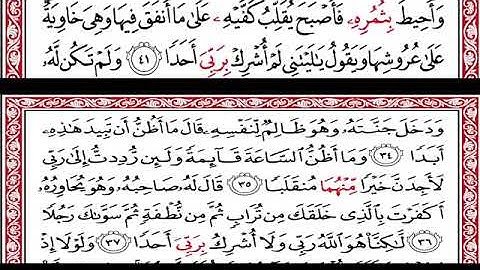 وَأُحِيطَ بِثُمُرِهِۦ فَأَصْبَحَ يُقَلِّبُ كَفَّيْهِ عَلَىٰ مَا أَنفَقَ فِيهَا وَهِىَ خَاوِيَةٌ
عَلَىٰ عُرُوشِهَا وَيَقُولُ يَٰلَيْتَنِى لَمْ أُشْرِكْ بِرَبِّىَ أَحَدًا ٤١ وَلَمْ تَكُن لَّهُۥ
وَدَخَلَ جَنَّتَهُۥ وَهُوَ ظَالِمٌ لِّنَفْسِهِۦ قَالَ مَا أَظُنُّ أَن تَبِيدَ هَٰذِهِۦ
أَبَدًا ٣٤ وَمَا أَظُنُّ ٱلسَّاعَةَ قَآئِمَةً وَلَئِن رُّدِدتُّ إِلَىٰ رَبِّى
لَأَجِدَنَّ خَيْرًا مِّنْهُمَا مُنقَلَبًا ٣٥ قَالَ لَهُۥ صَاحِبُهُۥ وَهُوَ يُحَاوِرُهُۥ
أَكَفَرْتَ بِٱلَّذِى خَلَقَكَ مِن تُرَابٍ ثُمَّ مِن نُّطْفَةٍ ثُمَّ سَوَّىٰكَ رَجُلًا
٣٦ لَّٰكِنَّا۠ هُوَ ٱللَّهُ رَبِّى وَلَا أُشْرِكُ بِرَبِّىَ أَحَدًا ٣٧ وَلَوْلَا إِذ